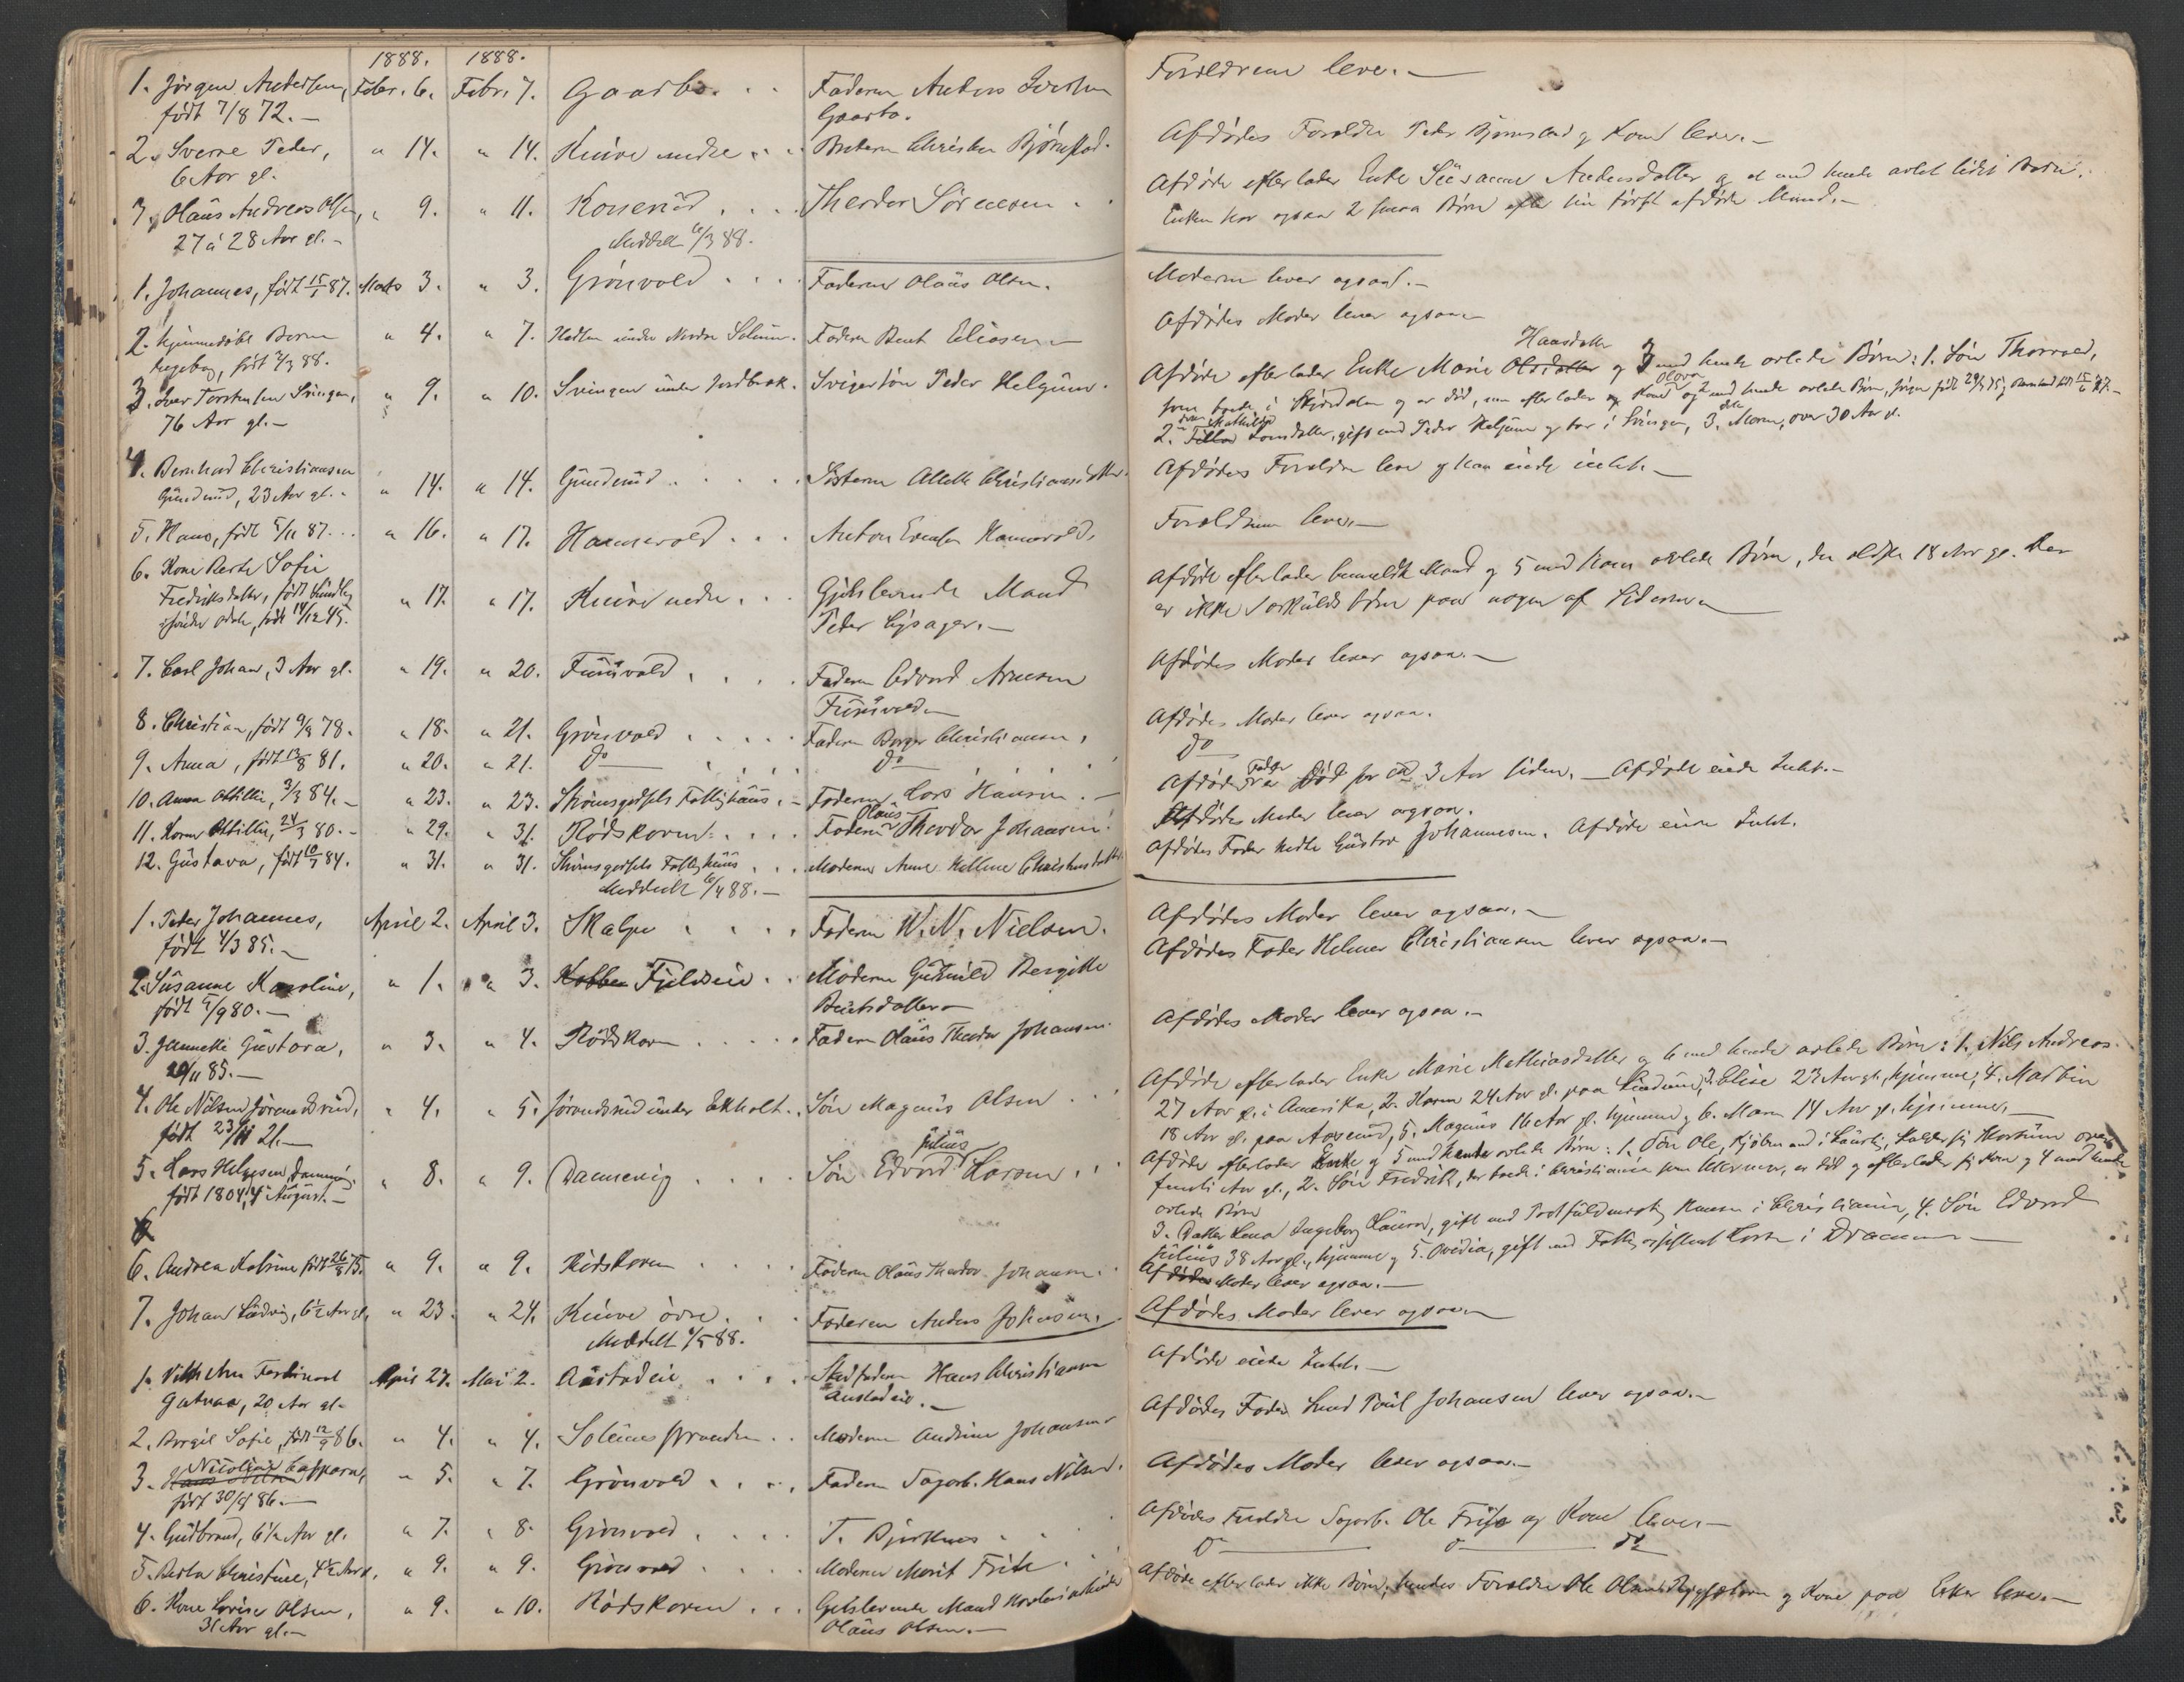 1888. 1888.
1. Jørgen Andersen, Febr. 6. Febr. 7. Gaarbo. . . Faderen Anders
født 7/8 72.— Gaarbo.
2. Sverre Peder, " 14. " 14. Knive nedre . . Christen Bjørnstad.
6 Aar gl.
3. Olaus Andreas Olsen, " 9. " 11. Korserud . . . Theodor Sørensen . .
27 à 28 Aar gl.— Meddelt 6/3 88.
1. Johannes, født 15/1 87. Marts 3. " 3. Grønvold . . . Faderen Olaus Olsen.
2. hjemmedøbt Barn " 4. " 7. under Nordre Solum. Faderen Bent Eliasen—
Ingeborg, født 2/3 88.
3. Iver Torstensen Svingen, " 9. " 10. Svingen under Nordbrak. Svigersøn Peder Helgum.
76 Aar gl.—
4. Bernhard Christiansen
Gundrud, 23 Aar gl. " 14. " 14. Gundrud . . . . Søsteren Christiansdatter.
5. Hans, født 5/11 87 . . . " 16. " 17. Hammervold . . . Anton Hammervold.
6. Kone Berte Sofie
Fredriksdatter, født " 17. " 17. Knive nedre . . Gjenlevende Mand
født 14/12 45. Peder Lysager.—
7. Carl Johan, 3 Aar gl. " 19. " 20. Furuvold . . . . Faderen Edvard Arnesen
Furuvold—
8. Christian, født 9/9 78. " 18. " 21. Grønvold . . . . Faderen Borger Christiansen.
9. Anna, født 13/8 81. " 20. " 21. do . . . . do . . . .
10. Anna Ottilie, 3/3 84.— " 23. " 23. Strømsgodsets Fattighuus.— Faderen Lars Hansen.—
11. Karen Ottilie, 24/3 80.— " 29. " 31. Rødskoven . . . . Faderen Olaus Theodor Johansen.
12. Gustava, født 10/7 84. " 31. " 31. Strømsgodsets Fattighuus . . . Moderen Anne Helline Christensdatter.
Meddelt 6/4 88.—
1. Peder Johannes, April 2. April 3. Skalpe . . . . Faderen W. N. Nielsen.
født 4/3 85.—
2. Susanne Karoline, " 1. " 3. Fjeldseie . . Moderen Gunhild Bergitte
født 5/9 80.— Bentsdatter—
3. Jannette Gustava, " 3. " 4. Rødskoven . . . . . Faderen Olaus Theodor Johansen.
20/11 85.—
4. Ole Nilsen Jørandsrud, " 4. " 5. Jørandsrud under Ekholt. . Søn Magnus Olsen . . .
født 23/11 21.—
5. Lars Helgesen Dannevig, " 8. " 9. Dannevig . . . . Søn Edvard Julius Larsen . . .
født 1804, 4 August.—
6. Andrea Katrine født 26/8 75. " 9. " 9. Rødskoven . . . . Faderen Olaus Theodor Johansen.
7. Johan Ludvig, 6 1/2 Aar gl. " 23. " 24. Knive øvre . . . Faderen Anders Johansen.
Meddelt 1/5 88.
1. Vilhelm Ferdinand April 27. Mai 2. Austadeie . . . . Stedfaderen Hans Christiansen
20 Aar gl.— Austadeie.—
2. Borgil Sofie, født 12/9 86. " 4. " 4. Solumsstranden . . Moderen Andrine Johansen
3. Nicoline Casparа, " 5. " 7. Grønvold . . . . Faderen Sagarb. Hans Nilsen.
født 30/9 86.—
4. Gudbrand, 6 1/2 Aar gl. " 7. " 8. Grønvold . . . . T. Bjerknes . . .
5. Berta Christine, 4 1/2 Aar gl. " 9. " 9. Grønvold . . . . Moderen Marit Friis . . .
6. Kone Lovise Olsen, " 9. " 10. Rødskoven . . . Gjenlevende Mand
31 Aar gl.— Olaus Olsen.—
Forældrene lever.—
Afdødes Forældre Peder Bjørnstad og Kone lever.—
Afdøde efterlader Enke Susanne Andersdatter og et med hende avlet lidet Barn.
Enken har ogsaa 2 smaa Børn efter sin først afdøde Mand.—
Moderen lever ogsaa.—
Afdødes Moder lever ogsaa—
Hansdatter
Afdøde efterlader Enke Marie Olsdatter og 3 med hende avlede Børn: 1. Søn Thorvald,
som boede i Skjærdalen og er død, men efterlader og Kone Olava og 2 med hende avlede Børn, Jørgen født
2. Mathilde Iversdatter, gift med Peder Helgum og bor i Svingen, 3. Maren, over 30 Aar gl.
Afdødes Forældre lever og han eiede intet.—
Forældrene lever.—
Afdøde efterlader bemeldte Mand og 5 med ham avlede Børn, den ældste 18 Aar gl. Der
er ikke Særkuldsbørn paa nogen af Siderne—
Afdødes Moder lever ogsaa.—
Afdødes Moder lever ogsaa.
do
Afdødes Fader er død for ca 3 Aar siden.— Afdøde eiede Intet.—
Afdødes Moder lever ogsaa.
Afdødes Fader hedte Gustav Johannesen. Afdøde eiede Intet.
Afdødes Moder lever ogsaa.—
Afdødes Fader Helmer Christiansen lever ogsaa.—
Afdødes Moder lever ogsaa.—
Afdøde efterlader Enke Marie Mathiasdatter og 6 med hende avlede Børn: 1. Nils Andreas
27 Aar gl. i Amerika, 2. Karen 24 Aar gl. paa Lindum, 3. Elise 22 Aar gl., hjemme, 4. Martin
18 Aar gl. paa Aaserud, 5. Magnus 16 Aar gl. hjemme og 6. Maren 14 Aar gl. hjemme.—
Afdøde efterlader Enke og 5 med hende avlede Børn: 1. Søn Ole, Kjøbmand i Laurvig, kalder sig over
Aar gl., 2. Søn Fredrik, der boede i Christiania som, er død og efterlader sig Kone og 4 med hende
avlede Børn
3. Datter Lena Ingeborg Laura, gift med Hansen i Christiania, 4. Søn Edvard
Julius 38 Aar gl., hjemme og 5. Ovidia, gift med i Drammen—
Afdødes Moder lever ogsaa.—
Afdødes Moder lever ogsaa—
Afdøde eiede Intet.—
Afdødes Fader Poul Johansen lever ogsaa.—
Afdødes Moder lever ogsaa.—
Afdødes Forældre Sagarb. Ole Friis og Kone lever—
do do do
Afdøde efterlader ikke Børn, hendes Forældre Ole Olsen og Kone paa Eker lever.—